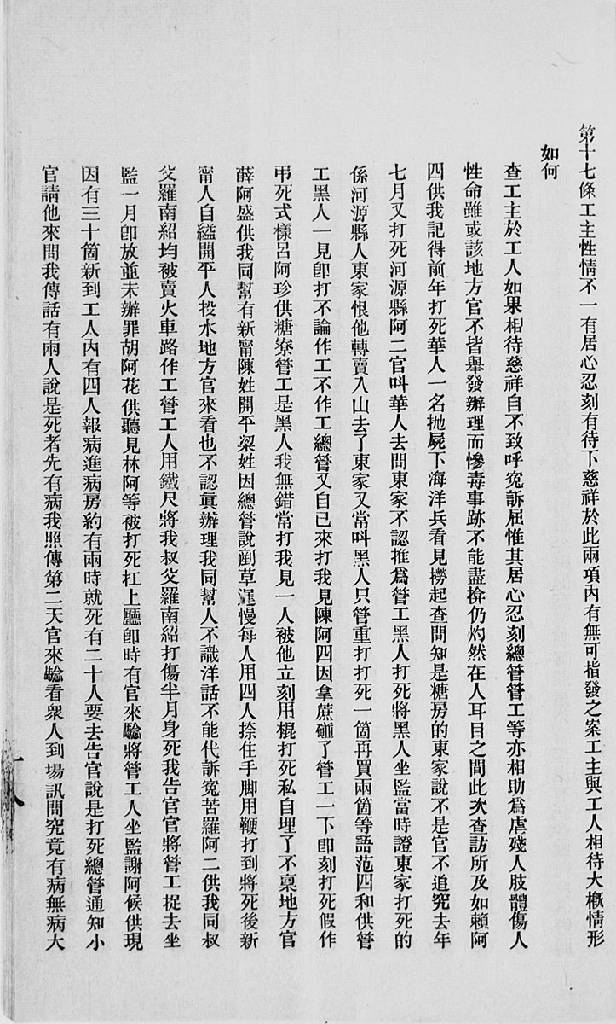 第十七條工主性情不一有居心忍刻有待下慈祥於此兩項內有無可指發之案工主與工人相待大概情形
如何
查工主於工人如果相待慈祥自不致呼冤訴屈惟其居心忍刻總管管工等亦相助為虐殘人肢體傷人
性命雖或該地方官不皆舉發辦理而慘毒事跡不能盡掩仍灼然在人耳目之間此次查訪所及如賴阿
四供我記得前年打死華人一名拋屍下海洋兵看見撈起查問知是糖房的東家說不是官不追究去年
七月又打死河源縣人阿二官叫華人去問東家不認推為管工黑人打死將黑人坐監當時證東家打死的
係河源縣人東家恨他轉賣入山去了東家又當叫黑人只管重打打死一箇再買兩箇等語范四和供管
工黑人一見即打不論作工不作工總管又自己來打我見陳阿四因拿蔗砸了管工一下即刻打死假作
弔死式樣呂阿珍供糖寮管工是黑人我無錯常打我見一人被他立刻用棍打死私自埋了不稟地方官
薛阿盛供我同幫有新甯陳姓開平梁姓因總管說剷草遲慢每人用四人捺住手脚用鞭打到將死後新
甯人自縊開平人投水地方官來看也不認真辦理我同幫人不識洋話不能代訴冤苦羅阿二供我同叔
父羅南紹均被賣火車路作工管工人用鐵尺將我叔父羅南紹打傷半月身死我告官官將管工捉去坐
監一月即放並未辦罪胡阿花供聽見林阿等被打死杠上廳即時有官來驗將管工人坐監謝阿候供現
因有三十箇新到工人內有四人報病進病房約有兩時就死有二十人要去告官說是打死總管通知小
官請他來問我傳話有兩人說是死者先有病我照傳第二天官來驗看眾人到場訊問究竟有病無病大